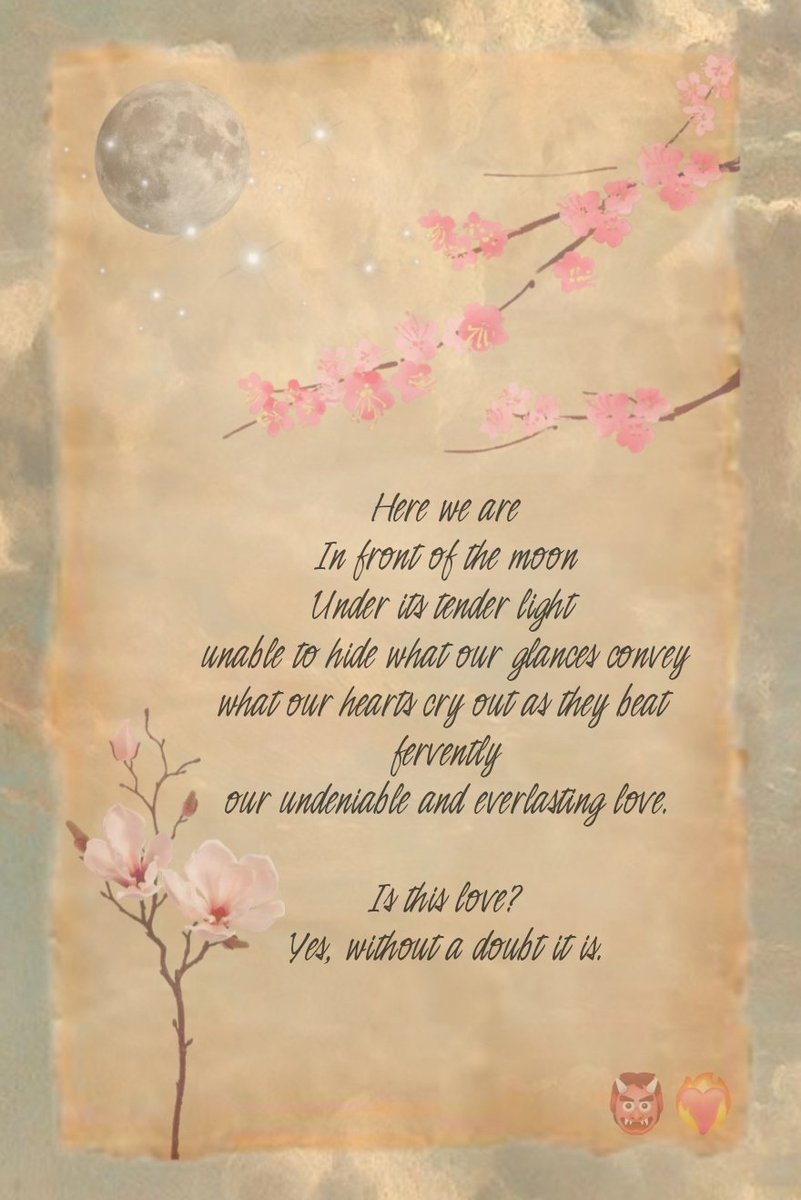 Here we are
In front of the moon
Under its tender light
unable to hide what our glances convey
what our hearts cry out as they beat
fervently
our undeniable and everlasting love.
Is this love?
Yes, without a doubt it is.